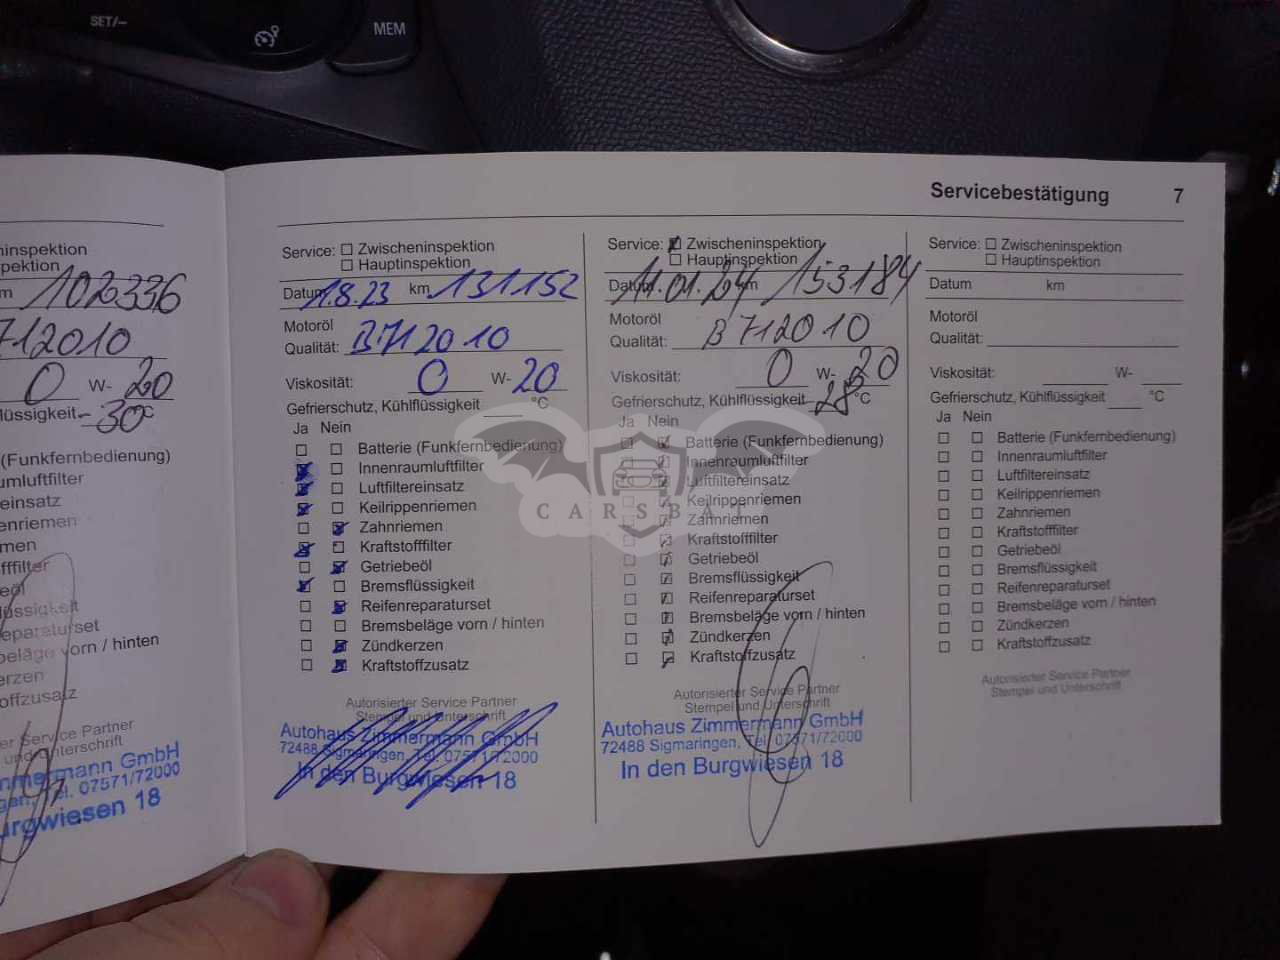 SET/–
MEM
Servicebestätigung 7
ninspektion
pektion
m 102336
712010
0 W- 20
lüssigkeit -30°C
(Funkfernbedienung)
umluftfilter
ereinsatz
enriemen
men
fffilter
eöl
lüssigkeit
eparaturset
beläge vorn / hinten
erzen
offzusatz
er Service Partner
und Unterschrift
mmermann GmbH
gen, Tel. 07571/72000
urgwiesen 18
Service: Zwischeninspektion
Hauptinspektion
Datum 1.8.23 km 131152
Motoröl
Qualität: B712010
Viskosität: 0 W- 20
Gefrierschutz, Kühlflüssigkeit °C
Ja Nein
Batterie (Funkfernbedienung)
Innenraumluftfilter
Luftfiltereinsatz
Keilrippenriemen
Zahnriemen
Kraftstofffilter
Getriebeöl
Bremsflüssigkeit
Reifenreparaturset
Bremsbeläge vorn / hinten
Zündkerzen
Kraftstoffzusatz
Autorisierter Service Partner
Stempel und Unterschrift
Autohaus Zimmermann GmbH
72488 Sigmaringen, Tel. 07571/72000
In den Burgwiesen 18
Service: Zwischeninspektion
Hauptinspektion
Datum 11.01.24 km 153184
Motoröl
Qualität: B712010
Viskosität: 0 W- 20
Gefrierschutz, Kühlflüssigkeit 28 °C
Ja Nein
Batterie (Funkfernbedienung)
Innenraumluftfilter
Luftfiltereinsatz
Keilrippenriemen
Zahnriemen
Kraftstofffilter
Getriebeöl
Bremsflüssigkeit
Reifenreparaturset
Bremsbeläge vorn / hinten
Zündkerzen
Kraftstoffzusatz
Autorisierter Service Partner
Stempel und Unterschrift
Autohaus Zimmermann GmbH
72488 Sigmaringen, Tel. 07571/72000
In den Burgwiesen 18
Service: Zwischeninspektion
Hauptinspektion
Datum km
Motoröl
Qualität:
Viskosität: W-
Gefrierschutz, Kühlflüssigkeit °C
Ja Nein
Batterie (Funkfernbedienung)
Innenraumluftfilter
Luftfiltereinsatz
Keilrippenriemen
Zahnriemen
Kraftstofffilter
Getriebeöl
Bremsflüssigkeit
Reifenreparaturset
Bremsbeläge vorn / hinten
Zündkerzen
Kraftstoffzusatz
Autorisierter Service Partner
Stempel und Unterschrift
CARSBAT